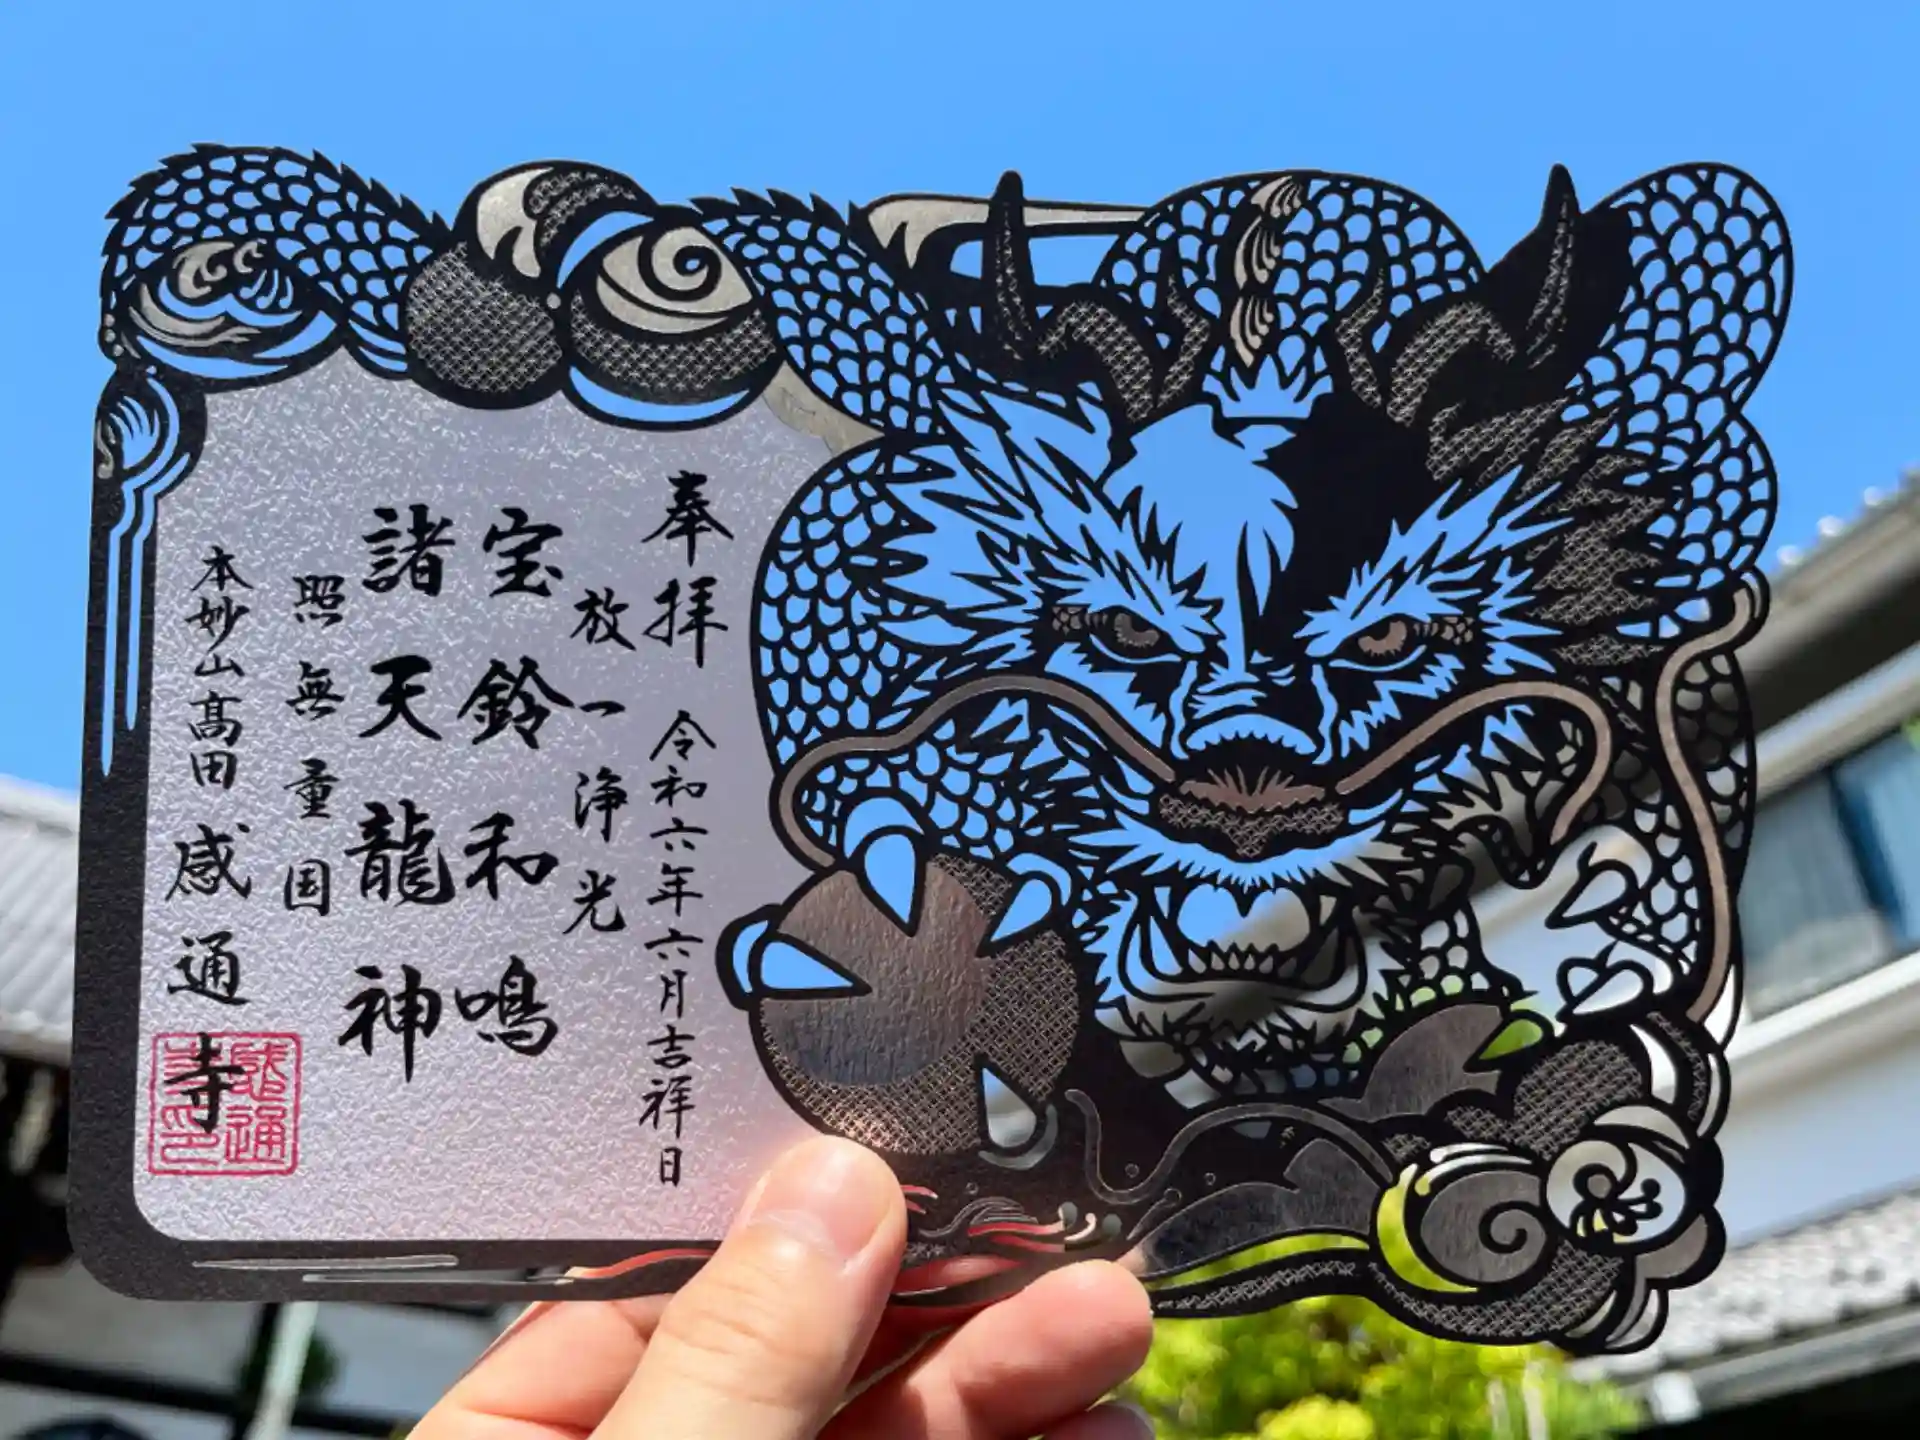 奉拝 令和六年六月吉祥日
放一浄光
宝鈴和鳴
諸天龍神
照無量国
本妙山高田感通寺
感通寺印